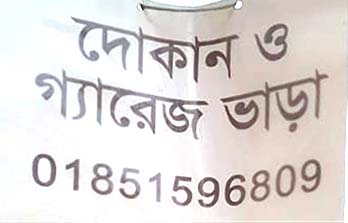 দোকান ও
গ্যারেজ ভাড়া
01851596809